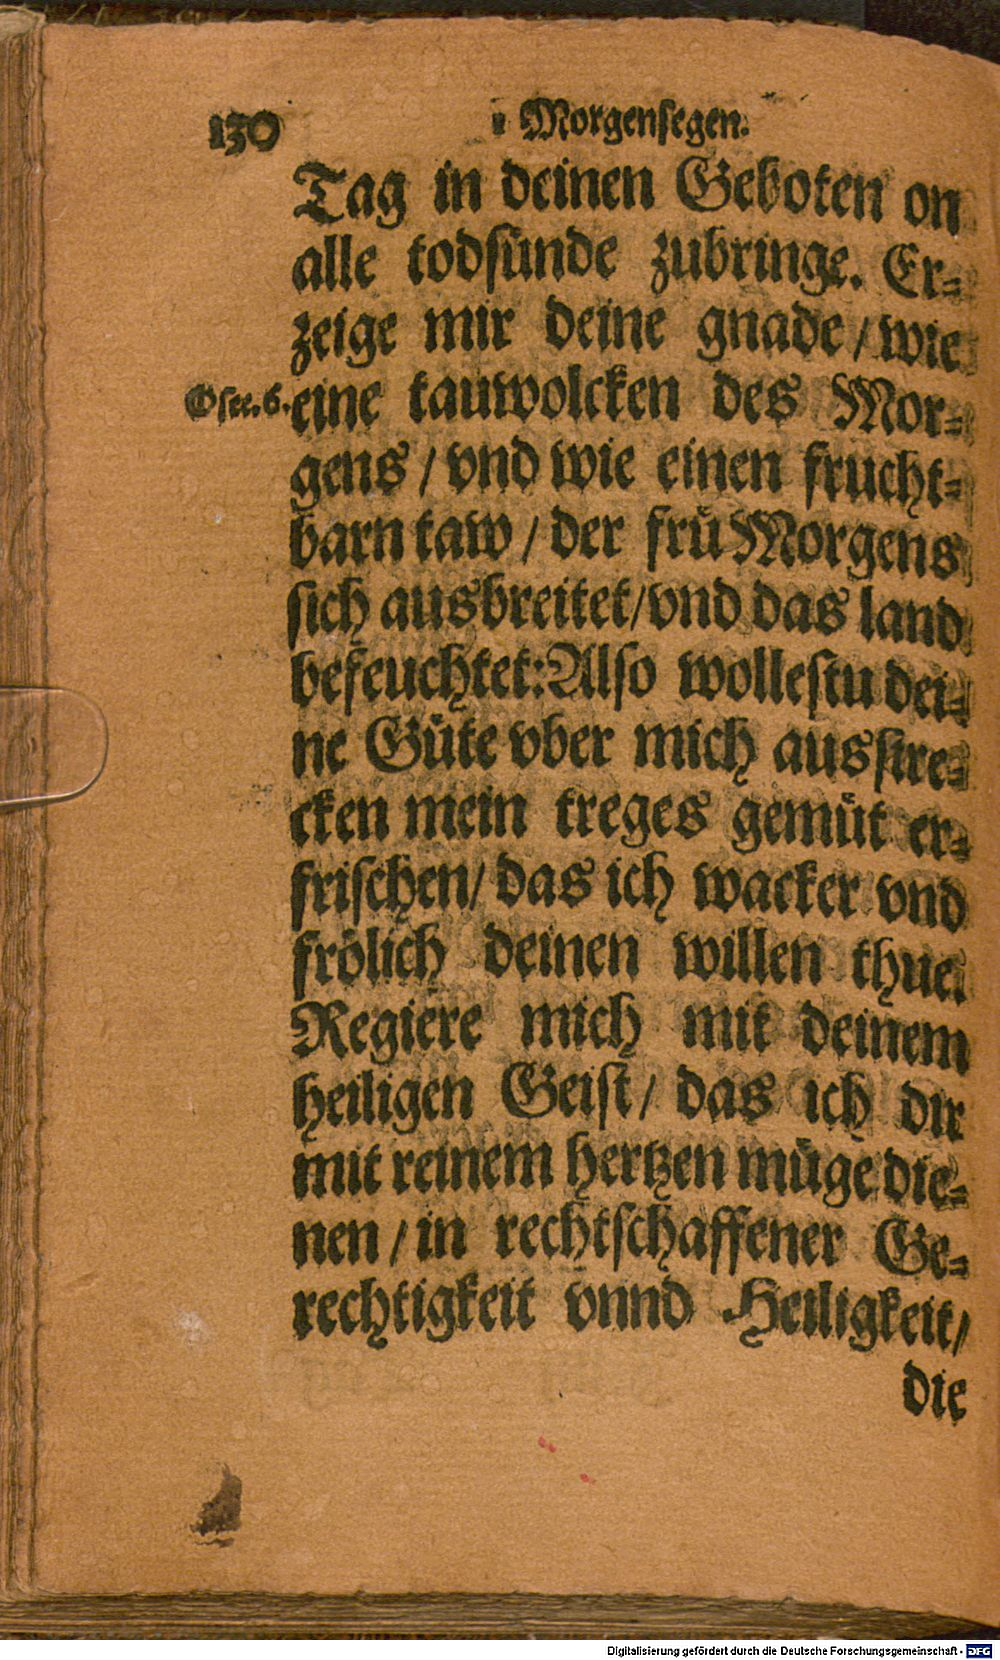 130 Morgensegen.
Tag in deinen Geboten on
alle todsünde zubringe. Er-
zeige mir deine gnade / wie
Osee. 6. eine tauwolcken des Mor-
gens / vnd wie einen frucht-
barn taw / der frü Morgens
sich ausbreitet/vnd das land
befeuchtet: Also wollestu dei-
ne Güte vber mich ausstre-
cken mein treges gemüt er-
frischen/ das ich wacker vnd
frölich deinen willen thue.
Regiere mich mit deinem
heiligen Geist/ das ich dir
mit reinem hertzen müge die-
nen / in rechtschaffener Ge-
rechtigkeit vnnd Heiligkeit/
die
Digitalisierung gefördert durch die Deutsche Forschungsgemeinschaft - DFG